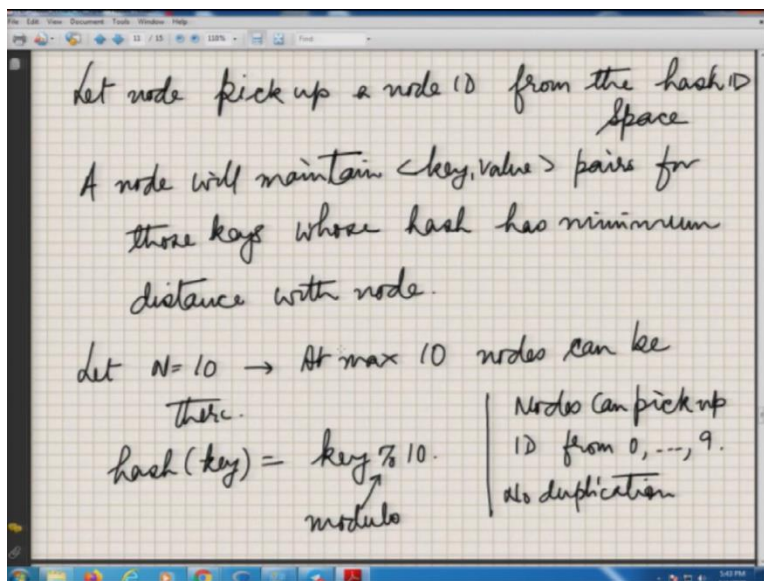 File Edit View Document Tools Window Help
11 / 15 118% Find
Let node pick up a node ID from the hash ID
space
A node will maintain <key, value> pairs for
those keys whose hash has minimum
distance with node.
Let N=10 → At max 10 nodes can be
there.
hash(key) = key % 10.
modulo
Nodes Can pick up
ID from 0, ..., 9.
No duplication
5:43 PM